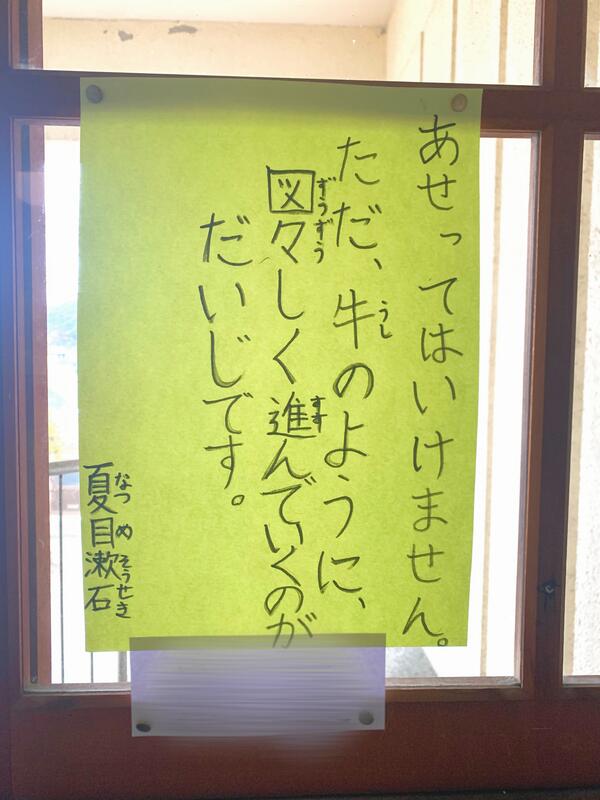 あせってはいけません。
ただ、牛のように、
図々しく進んでいくのが
だいじです。
夏目漱石
うし
ずうずう
すす
なつめそうせき